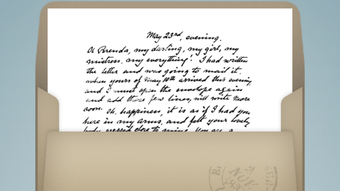 May 23rd, evening.
O Brenda, my darling, my girl, my
mistress, my everything! I had written
the letter and was going to mail it,
when yours of May 10th arrived this evening,
and I must open the envelope again
and add these few lines, will write more
soon. Oh, happiness, it is as if I had you
here in my arms, and felt your lovely
body pressed close to mine. You are a